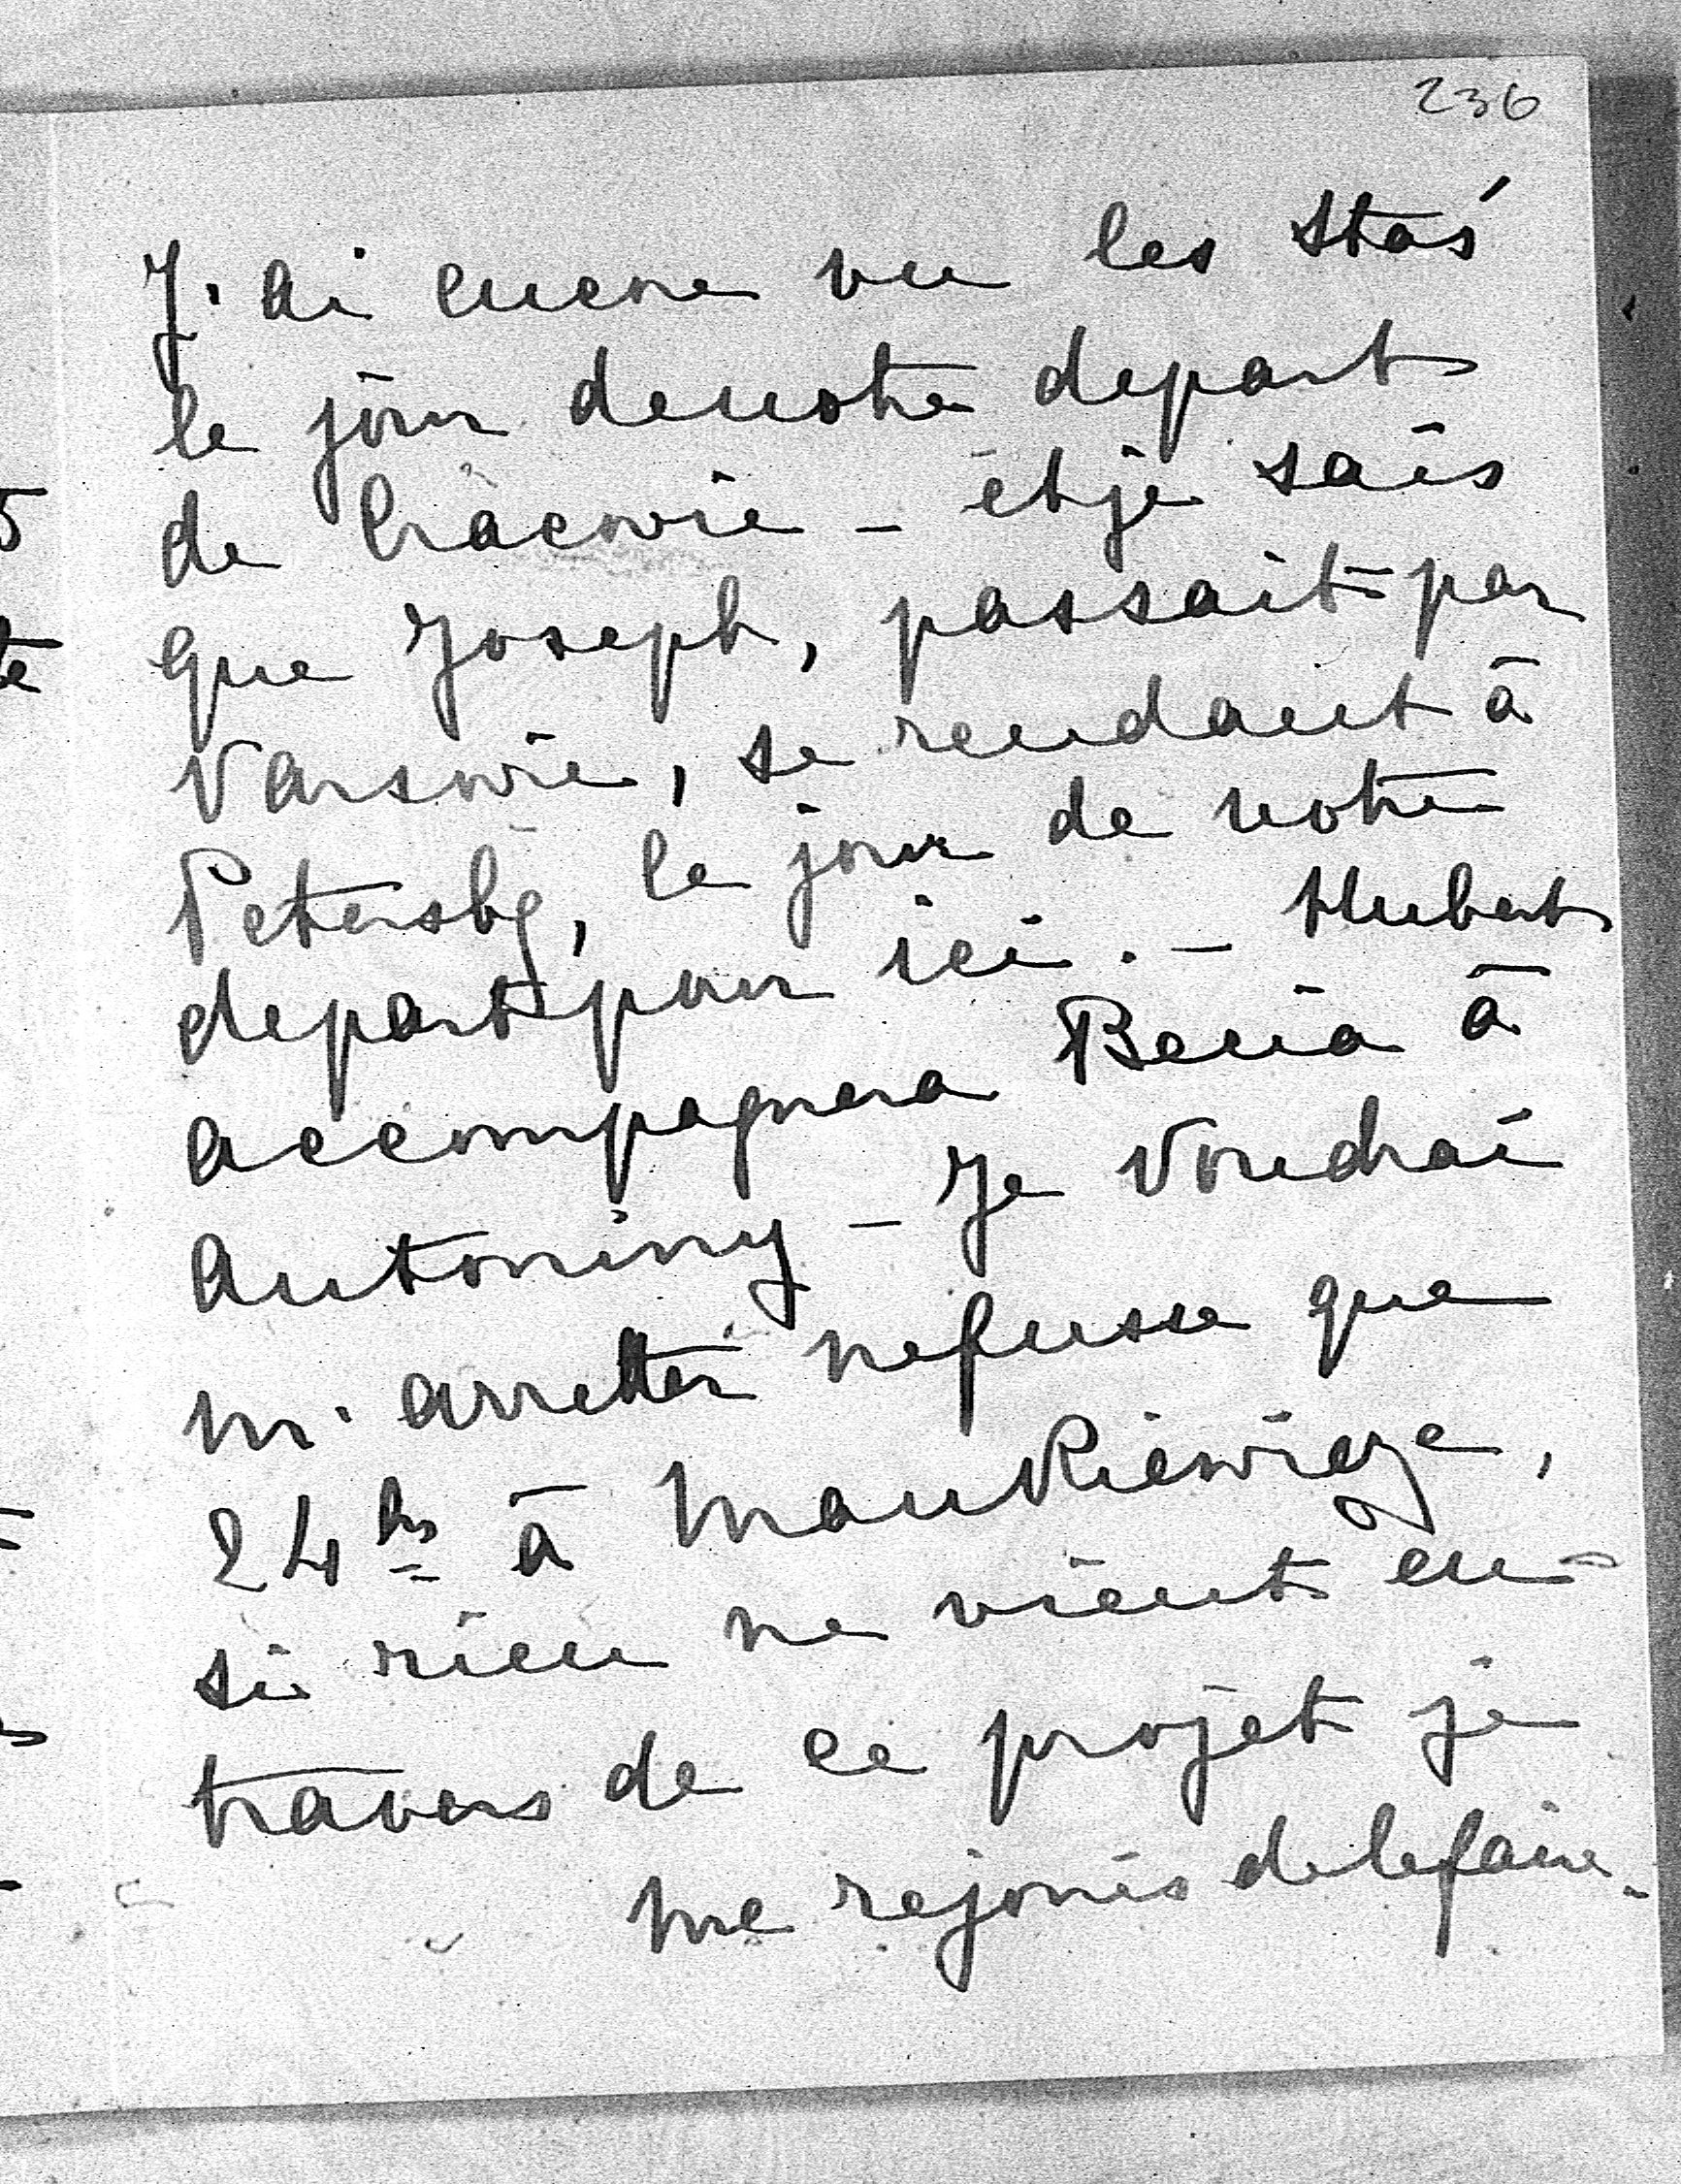 236
J'ai encore vu les Staś
le jour de notre depart
de Cracovie - et je sais
que Joseph, passait par
Varsovie, se rendant à
Petersbg, le jour de notre
depart pour ici. - Hubert
accompagnera Benia à
Antoniny - Je voudrai
m'arretter ne fusse que
24 hrs à Mankiewicze,
si rien ne vient en
travers de ce projet je
me rejouis de le faire.